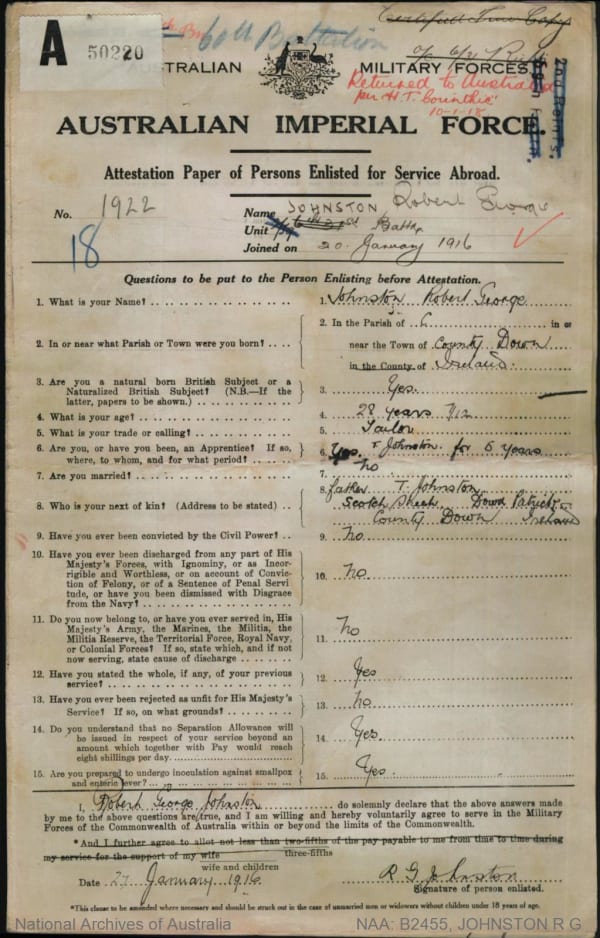 A 50220
60th Battalion
Certified True Copy
AUSTRALIAN MILITARY FORCES.
Returned to Australia
per H.T.
10-1-18
2nd Reinfts.
AUSTRALIAN IMPERIAL FORCE.
Attestation Paper of Persons Enlisted for Service Abroad.
No. 1922 Name JOHNSTON Robert George
18 Unit Battn
Joined on 20 January 1916
Questions to be put to the Person Enlisting before Attestation.
1. What is your Name? 1. Johnston Robert George
2. In or near what Parish or Town were you born? 2. In the Parish of in or
near the Town of County Down
in the County of Ireland.
3. Are you a natural born British Subject or a
Naturalized British Subject? (N.B.—If the
latter, papers to be shown.) 3. Yes.
4. What is your age? 4. 28 years
5. What is your trade or calling? 5. Tailor
6. Are you, or have you been, an Apprentice? If so,
where, to whom, and for what period? 6. Yes. Johnston for 5 years
7. Are you married? 7. No
8. Who is your next of kin? (Address to be stated) 8. father T. Johnston
Scotch Street Down Patrick
County Down Ireland
9. Have you ever been convicted by the Civil Power? 9. No
10. Have you ever been discharged from any part of His
Majesty's Forces, with Ignominy, or as Incor-
rigible and Worthless, or on account of Convic-
tion of Felony, or of a Sentence of Penal Servi
tude, or have you been dismissed with Disgrace
from the Navy? 10. No
11. Do you now belong to, or have you ever served in, His
Majesty's Army, the Marines, the Militia, the
Militia Reserve, the Territorial Force, Royal Navy,
or Colonial Forces? If so, state which, and if not
now serving, state cause of discharge 11. No
12. Have you stated the whole, if any, of your previous
service? 12. Yes
13. Have you ever been rejected as unfit for His Majesty's
Service? If so, on what grounds? 13. No
14. Do you understand that no Separation Allowance will
be issued in respect of your service beyond an
amount which together with Pay would reach
eight shillings per day 14. Yes.
15. Are you prepared to undergo inoculation against smallpox
and enteric fever? 15. Yes.
I, Robert George Johnston do solemnly declare that the above answers made
by me to the above questions are true, and I am willing and hereby voluntarily agree to serve in the Military
Forces of the Commonwealth of Australia within or beyond the limits of the Commonwealth.
*And I further agree to allot not less than two-fifths of the pay payable to me from time to time during
my service for the support of my wife three-fifths
wife and children
Date 27 January 1916 R G Johnston
Signature of person enlisted.
*This clause to be amended where necessary and should be struck out in the case of unmarried men or widowers without children under 18 years of age.
National Archives of Australia NAA: B2455, JOHNSTON R G